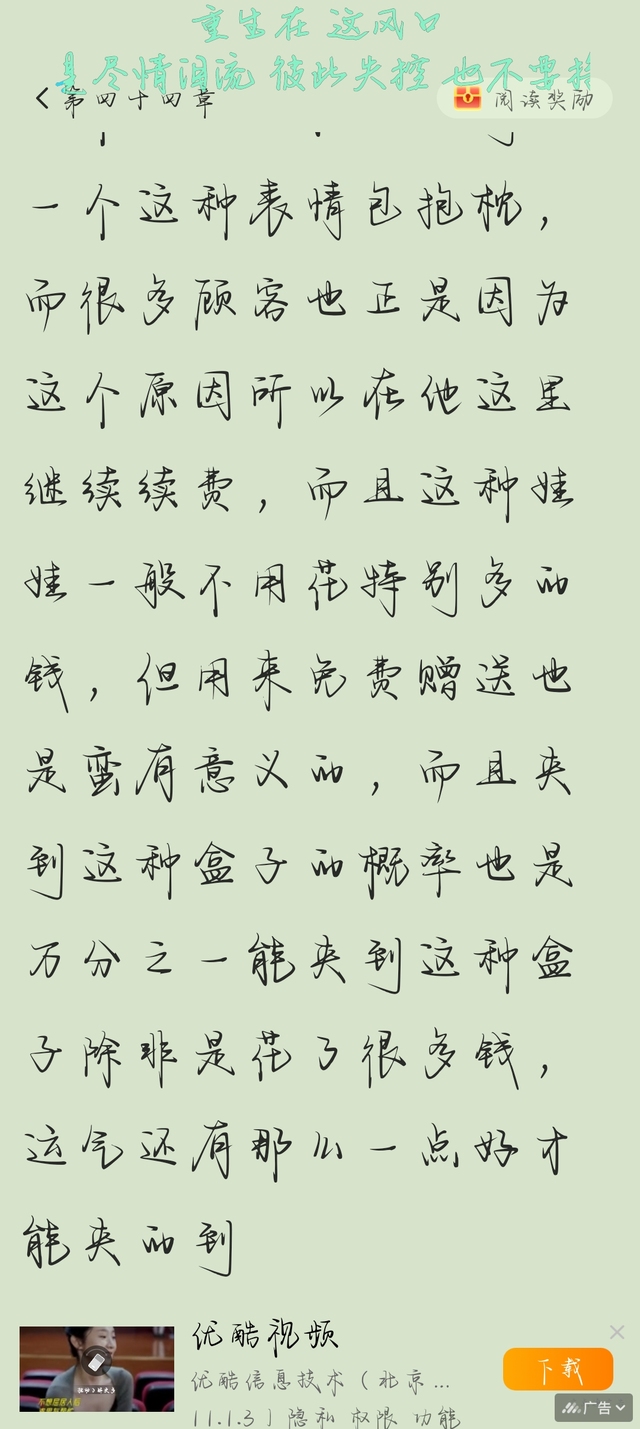 重生在 这风口
尽情泪流 彼此失控 也不要
第四十四章
阅读奖励
一个这种表情包抱枕，
而很多顾客也正是因为
这个原因所以在他这里
继续续费，而且这种娃
娃一般不用花特别多的
钱，但用来免费赠送也
是蛮有意义的，而且夹
到这种盒子的概率也是
万分之一能夹到这种盒
子除非是花了很多钱，
运气还有那么一点好才
能夹的到
优酷视频
优酷信息技术（北京...
11.1.3 | 隐私 权限 功能
下载
广告